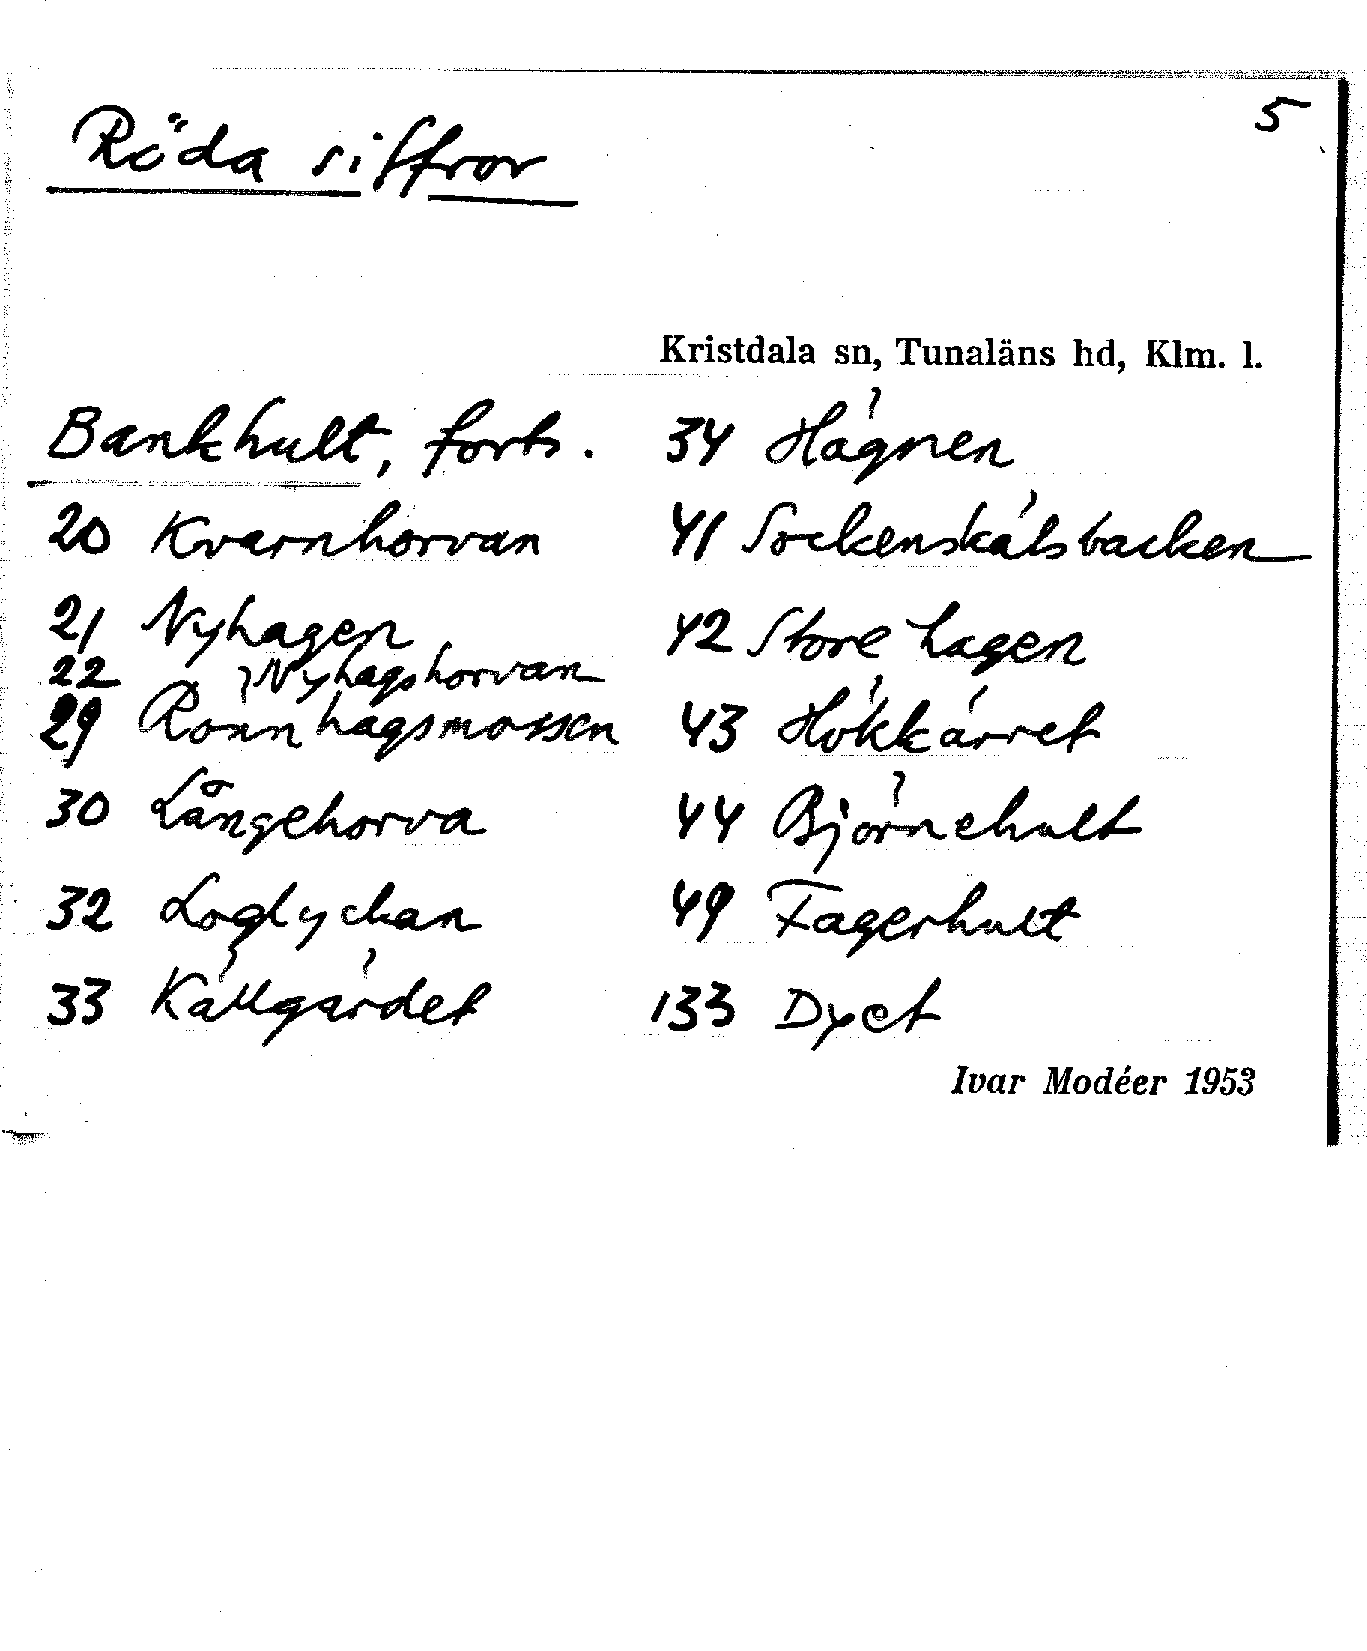 5
Röda siffror
Kristdala sn, Tunaläns hd, Klm. l.
Bankhult, forts.
20 Kvarnhorvan
21 Nyhagen
22 Nyhagshorvan
29 Rönnhagsmossen
30 Långehorva
32 Loglyckan
33 Källgärdet
34 Hägnen
41 Sockenskälsbacken
42 Store hagen
43 Hökkärret
44 Björnehult
49 Fagerhult
133 Dyet
Ivar Modéer 1953